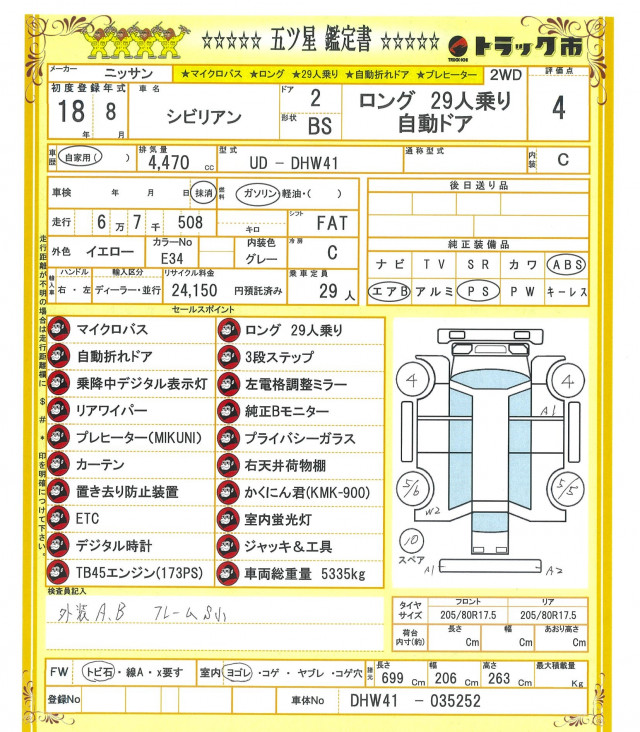 ☆☆☆☆☆ 五ツ星 鑑定書 ☆☆☆☆☆ トラック市
TRUCK-ICHI
メーカー ニッサン ★マイクロバス ★ロング ★29人乗り ★自動折れドア ★プレヒーター 2WD 評価点
初度登録年式 18年 8月 車名 シビリアン ドア 2 形状 BS ロング 29人乗り 自動ドア 4
車歴 自家用( ) 排気量 4,470 cc 型式 UD - DHW41 通称型式 内装 C
車検 年 月 日 抹消 燃料 ガソリン・軽油・( ) 後日送り品
走行 6万7千508 キロ シフト FAT
外色 イエロー カラーNo E34 内装色 グレー 冷房 C 純正装備品
ナビ TV SR カワ ABS
輸入車 ハンドル 右・左 輸入区分 ディーラー・並行 リサイクル料金 24,150 円預託済み 乗車定員 29人
エアB アルミ PS PW キーレス
走行距離が不明の場合は走行距離欄に $ # * 印を明確につけて下さい。
セールスポイント
マイクロバス ロング 29人乗り
自動折れドア 3段ステップ
乗降中デジタル表示灯 左電格調整ミラー
リアワイパー 純正Bモニター
プレヒーター(MIKUNI) プライバシーガラス
カーテン 右天井荷物棚
置き去り防止装置 かくにん君(KMK-900)
ETC 室内蛍光灯
デジタル時計 ジャッキ&工具
TB45エンジン(173PS) 車両総重量 5335kg
4 4
A1
5/6 5/5
W2
10
スペア
A1 A2
検査員記入
外装A.B フレームS小
タイヤサイズ フロント 205/80R17.5 リア 205/80R17.5
荷台内寸(約) 長さ Cm 幅 Cm あおり高さ Cm
FW トビ石・線A・x要す 室内 ヨゴレ・コゲ・ヤブレ・コゲ穴 諸元 長さ 699 Cm 幅 206 Cm 高さ 263 Cm 最大積載量 Kg
登録No 車体No DHW41 - 035252